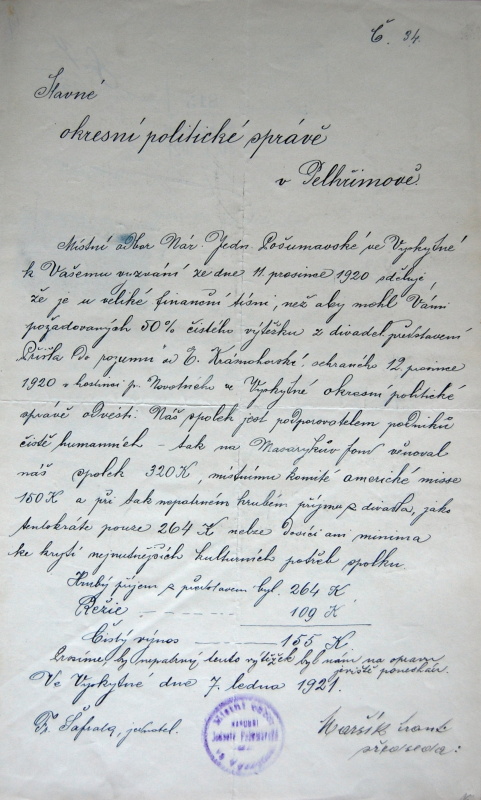 Č. 34
Slavné
okresní politické správě
v Pelhřimově.
Místní odbor Nár. Jedn. Pošumavské ve Vyskytné
k Vašemu vyzvání ze dne 11. prosince 1920 sděluje,
že je u veliké finanční tísni, než aby mohl Vámi
požadovaných 50% čistého výtěžku z divadel. představení
"Přišla do rozumu" od E. Krásnohorské, sehraného 12. prosince
1920 v hostinci p. Novotného ve Vyskytné okresní politické
správě odvésti. Náš spolek jest podporovatelem podniků
čistě humanních - tak na Masarykův fond věnoval
náš spolek 320 K, místnímu komité americké misse
150 K a při tak nepatrném hrubém příjmu z divadla, jako
tentokráte pouze 264 K nelze docíliti ani minima
ke krytí nejnutnějších kulturních potřeb spolku.
Hrubý příjem z představení byl 264 K
Režie 109 K
Čistý výnos 155 K
Prosíme, by nepatrný tento výtěžek byl nám na opravu
jeviště ponechán.
Ve Vyskytné dne 7. ledna 1921.
Fr. Šafrata, jednatel.
Místní odbor
Národní
Jednoty Pošumavské
ve Vyskytné
Maršík
předseda: